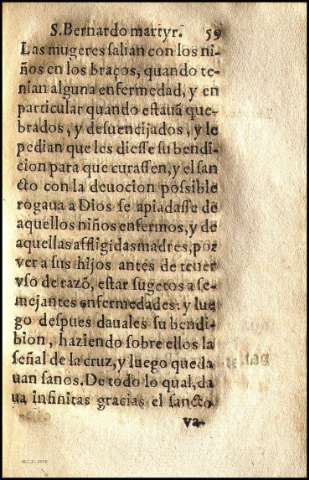 S. Bernardo martyr. 59
Las mugeres salian con los ni-
ños en los braços, quando te-
nian alguna enfermedad, y en
particular quando estauã que-
brados, y desuencijados, y le
pedian que les diesse su bendi-
cion para que curassen, y el san
cto con la deuocion possible
rogaua a Dios se apiadasse de
aquellos niños enfermos, y de
aquellas affligidas madres, por
ver a sus hijos antes de tener
vso de razõ, estar sugetos a se-
mejantes enfermedades: y lue
go despues dauales su bendi-
bion, haziendo sobre ellos la
señal de la cruz, y luego queda
uan sanos. De todo lo qual, da
ua infinitas gracias el sancto
va-